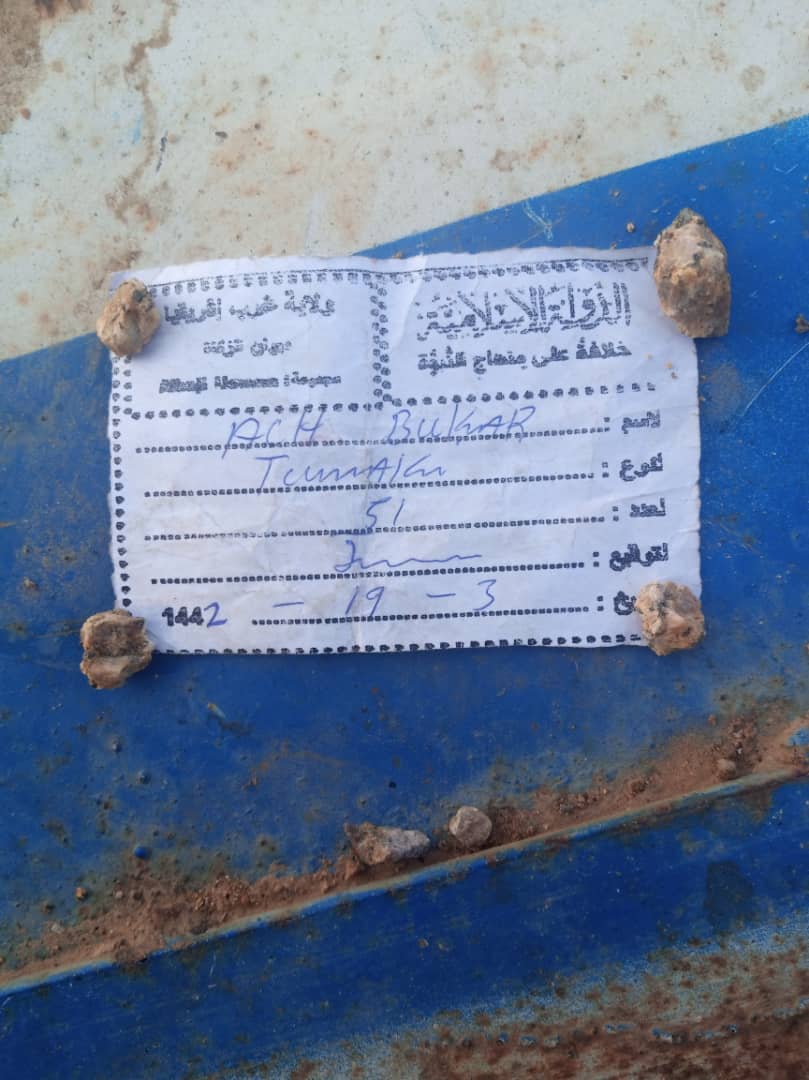 الدولة الإسلامية
خلافة على منهاج النبوة
ولاية غرب إفريقيا
ديوان الزكاة
الاسم : ACH BUKAR
النوع : TUMAKI
العدد : 51
التوقيع :
3 - 19 - 1442